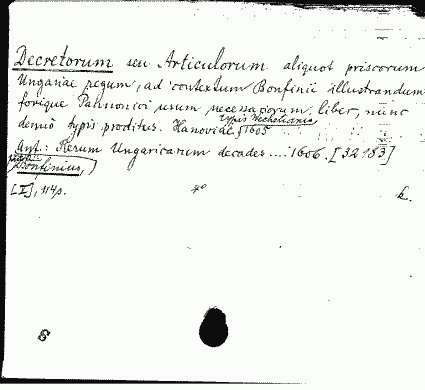 Decretorum seu Articulorum aliquot priscorum
Ungariae regum, ad contextum Bonfinii illustrandum
forique Pannonici usum necessariorum liber, nunc
denuo typis proditus. Hanoviae, typis Wechelianis 1605
Ant.: Rerum Ungaricarum decades .... 1606. [32183]
Bonfinius,
[I], 114 p. 4° k.